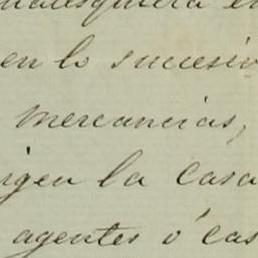 en lo sucesiv
mercancias,
igen la casa
agentes ó cas